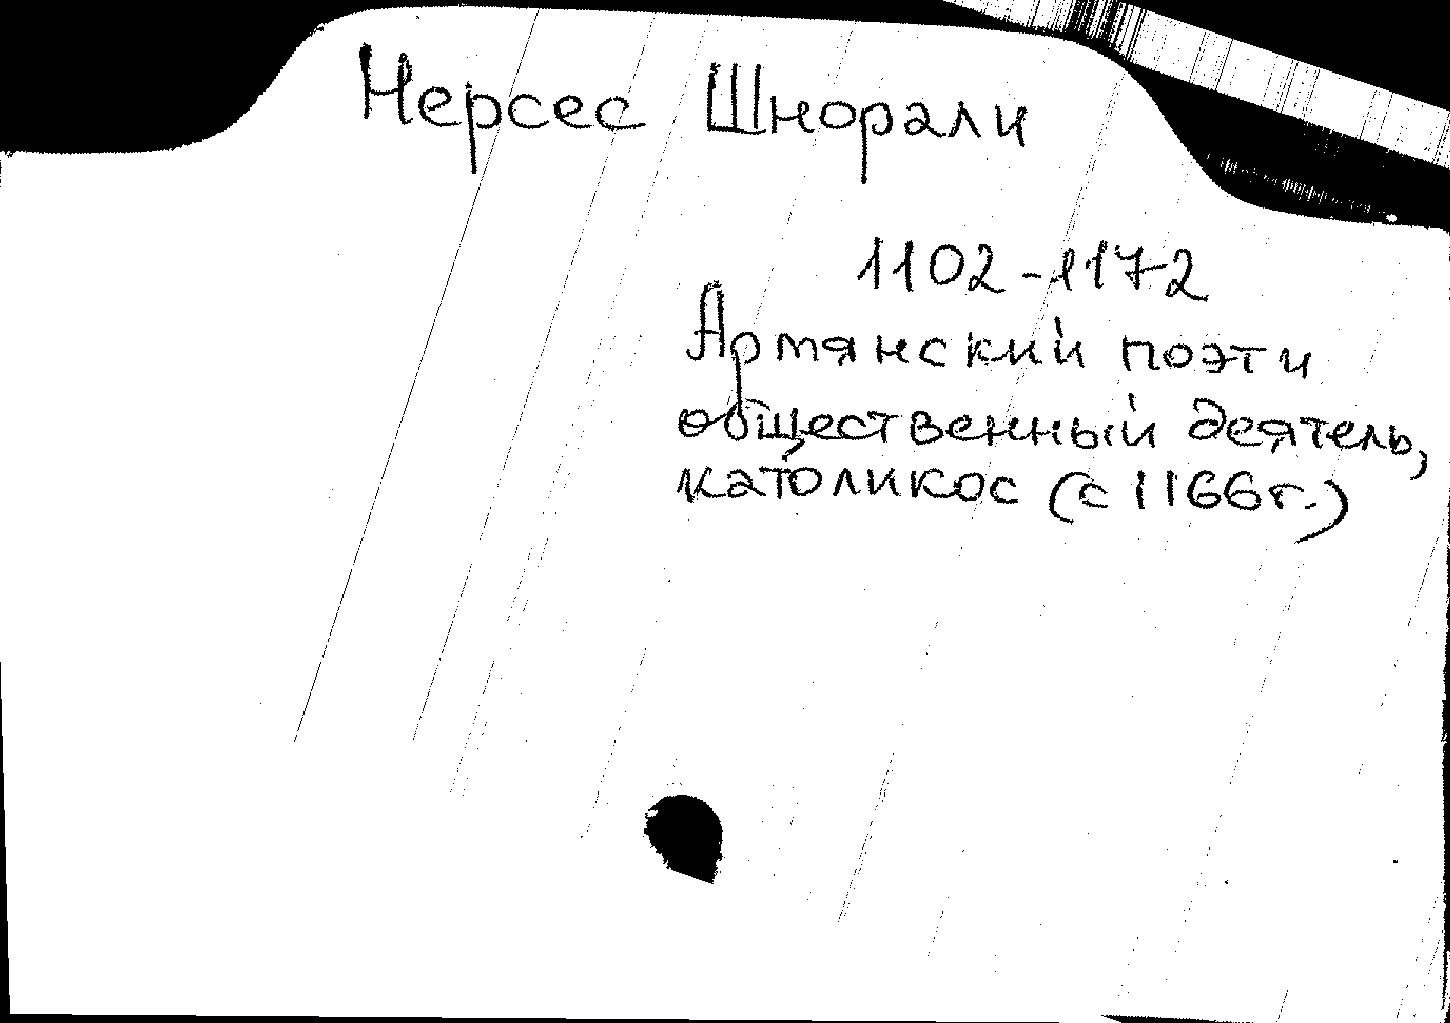 Нерсес Шнорали
1102-1172
Армянский поэт и
общественный деятель,
католикос (с 1166 г.)